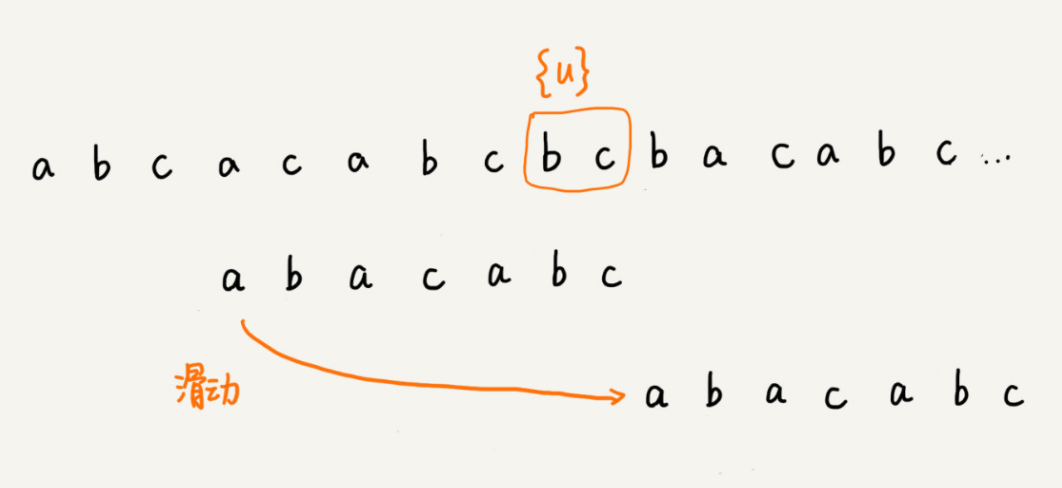 {u}
a b c a c a b c b c b a c a b c ...
a b a c a b c
滑动
a b a c a b c